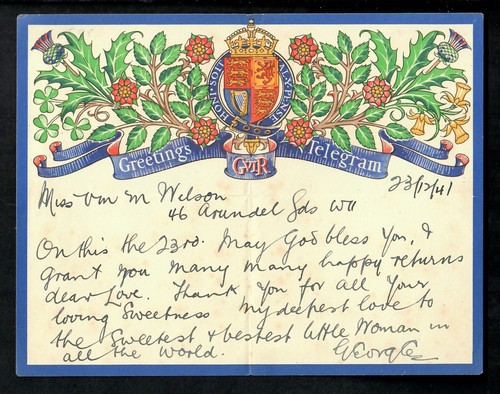 HONI · SOIT · QUI · MAL · Y · PENSE
Greetings GVIR Telegram
23/12/41
Miss M Wilson
46 Arundel Gds W11
On this the 23rd. May God bless You, &
grant You Many Many happy returns
dear Love. Thank You for all Your
loving Sweetness My deepest love to
the Sweetest & bestest little Woman in
all the World. George